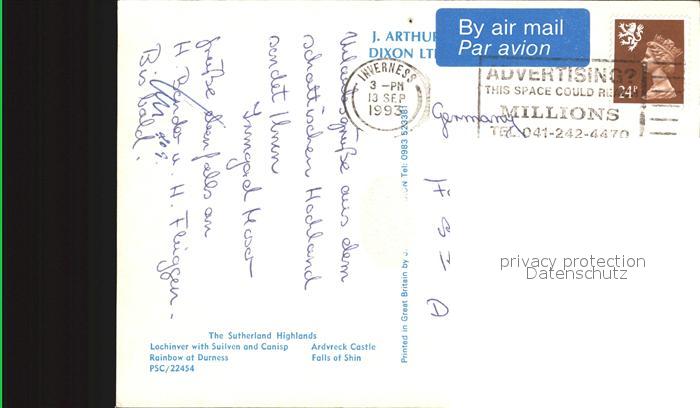 J. ARTHUR
DIXON LTD
By air mail
Par avion
24P
INVERNESS
3 -PM
13 SEP
1993
ADVERTISING?
THIS SPACE COULD RE
MILLIONS
TEL. 041-242-4470
Urlaubsgrüße aus dem
schottischen Hochland
sendet Ihnen
Irmgard Moser
Grüße ebenfalls an
H. Bender u. H. Flüggen.
Bis bald!
Germany
privacy protection
Datenschutz
Printed in Great Britain by J.
ON Tel: 0983 523381
The Sutherland Highlands
Lochinver with Suilven and Canisp Ardvreck Castle
Rainbow at Durness Falls of Shin
PSC/22454